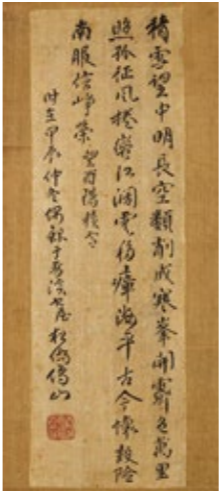 積雪望中明長空類削成寒峯開霽色萬里
照孤征風捲寒江濶雲傷瘴海平古今懷數險
南服信崢嶸 望酉陽積雪
時在甲辰仲冬偶録于 松僑傅山